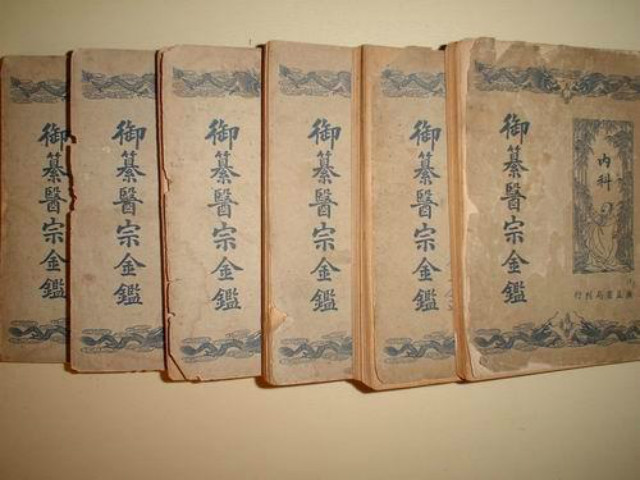 御纂醫宗金鑑
御纂醫宗金鑑
御纂醫宗金鑑
御纂醫宗金鑑
御纂醫宗金鑑
御纂醫宗金鑑
内科
行刊局書益